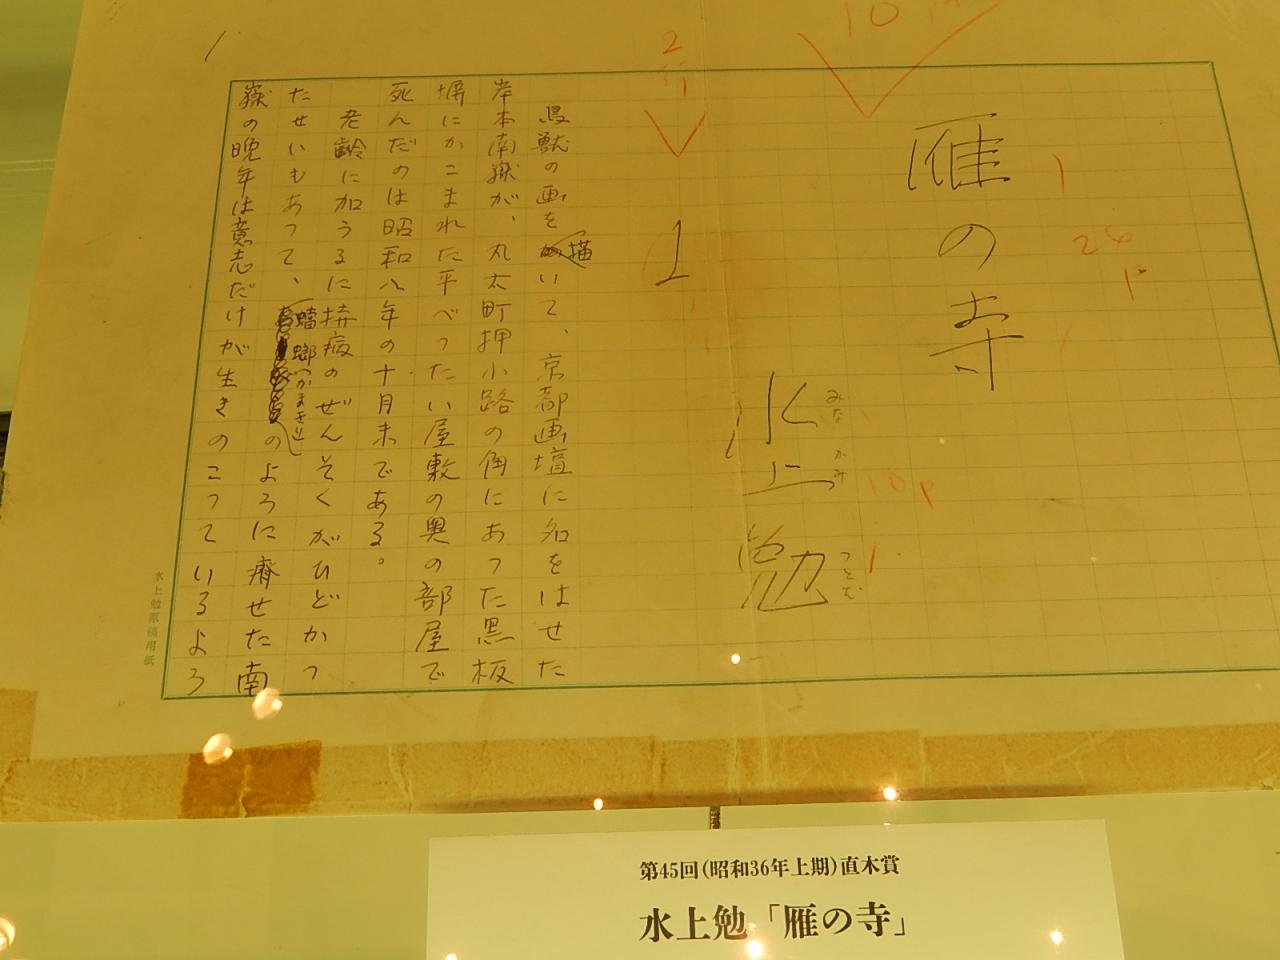 10
雁の寺
1
24
1P
水上勉
みなかみ
つとむ
10P
1
2行
1
鳥獣の画を描いて、京都画壇に名をはせた
岸本南嶽が、丸太町押小路の角にあった黒板
塀にかこまれた平べったい屋敷の奥の部屋で
死んだのは昭和八年の十月末である。
老齢に加うるに持病のぜんそくがひどかっ
たせいもあって、蟷螂(かまきり)のように瘠せた南
嶽の晩年は意志だけが生きのこっているよう
水上勉原稿用紙
第45回(昭和36年上期)直木賞
水上勉「雁の寺」